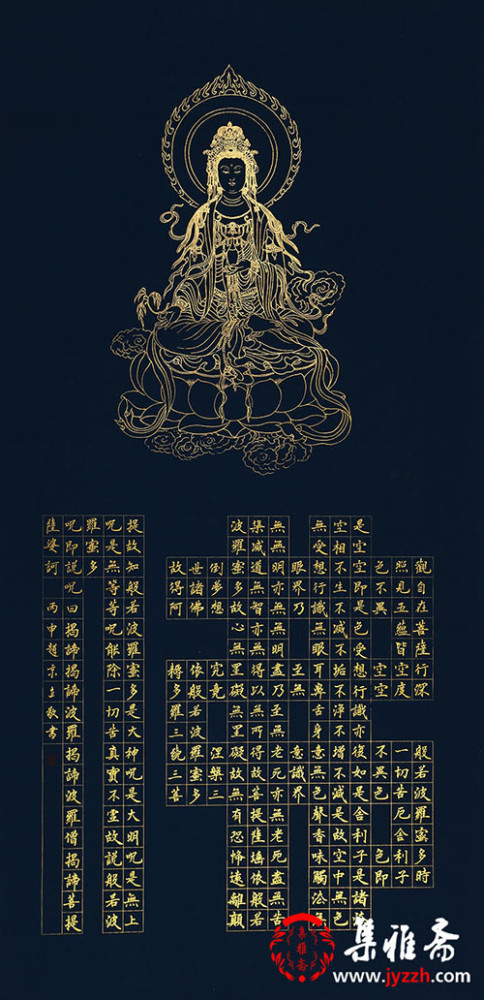 觀自在菩薩行深 般若波羅蜜多時
照見五蘊皆空度 一切苦厄舍利子
色不異 空空 不異色 色即
是空空即是色受想行識亦復如是舍利子是諸法
空相不生不滅不垢不淨不增不減是故空中無色
無受想行識無眼耳鼻舌身意無色聲香味觸法無
眼界乃 至無 意識界
無無明亦無明盡乃至無老死亦無老死盡無苦
集滅道無智亦無得以無所得故菩提薩埵依般若
波羅蜜多故心無罣礙無罣礙故無有恐怖遠離顛
倒夢想 究竟 涅槃三
世諸佛 依般若波羅蜜多
故得阿 耨多羅三藐三菩
提故知般若波羅蜜多是大神呪是大明呪是無上
呪是無等等呪能除一切苦真實不虛故說般若波
羅蜜多
呪即說呪曰揭諦揭諦波羅揭諦波羅僧揭諦菩提
薩婆訶 丙申趙京立敬書
集雅斋
集雅斋
www.jyzzh.com